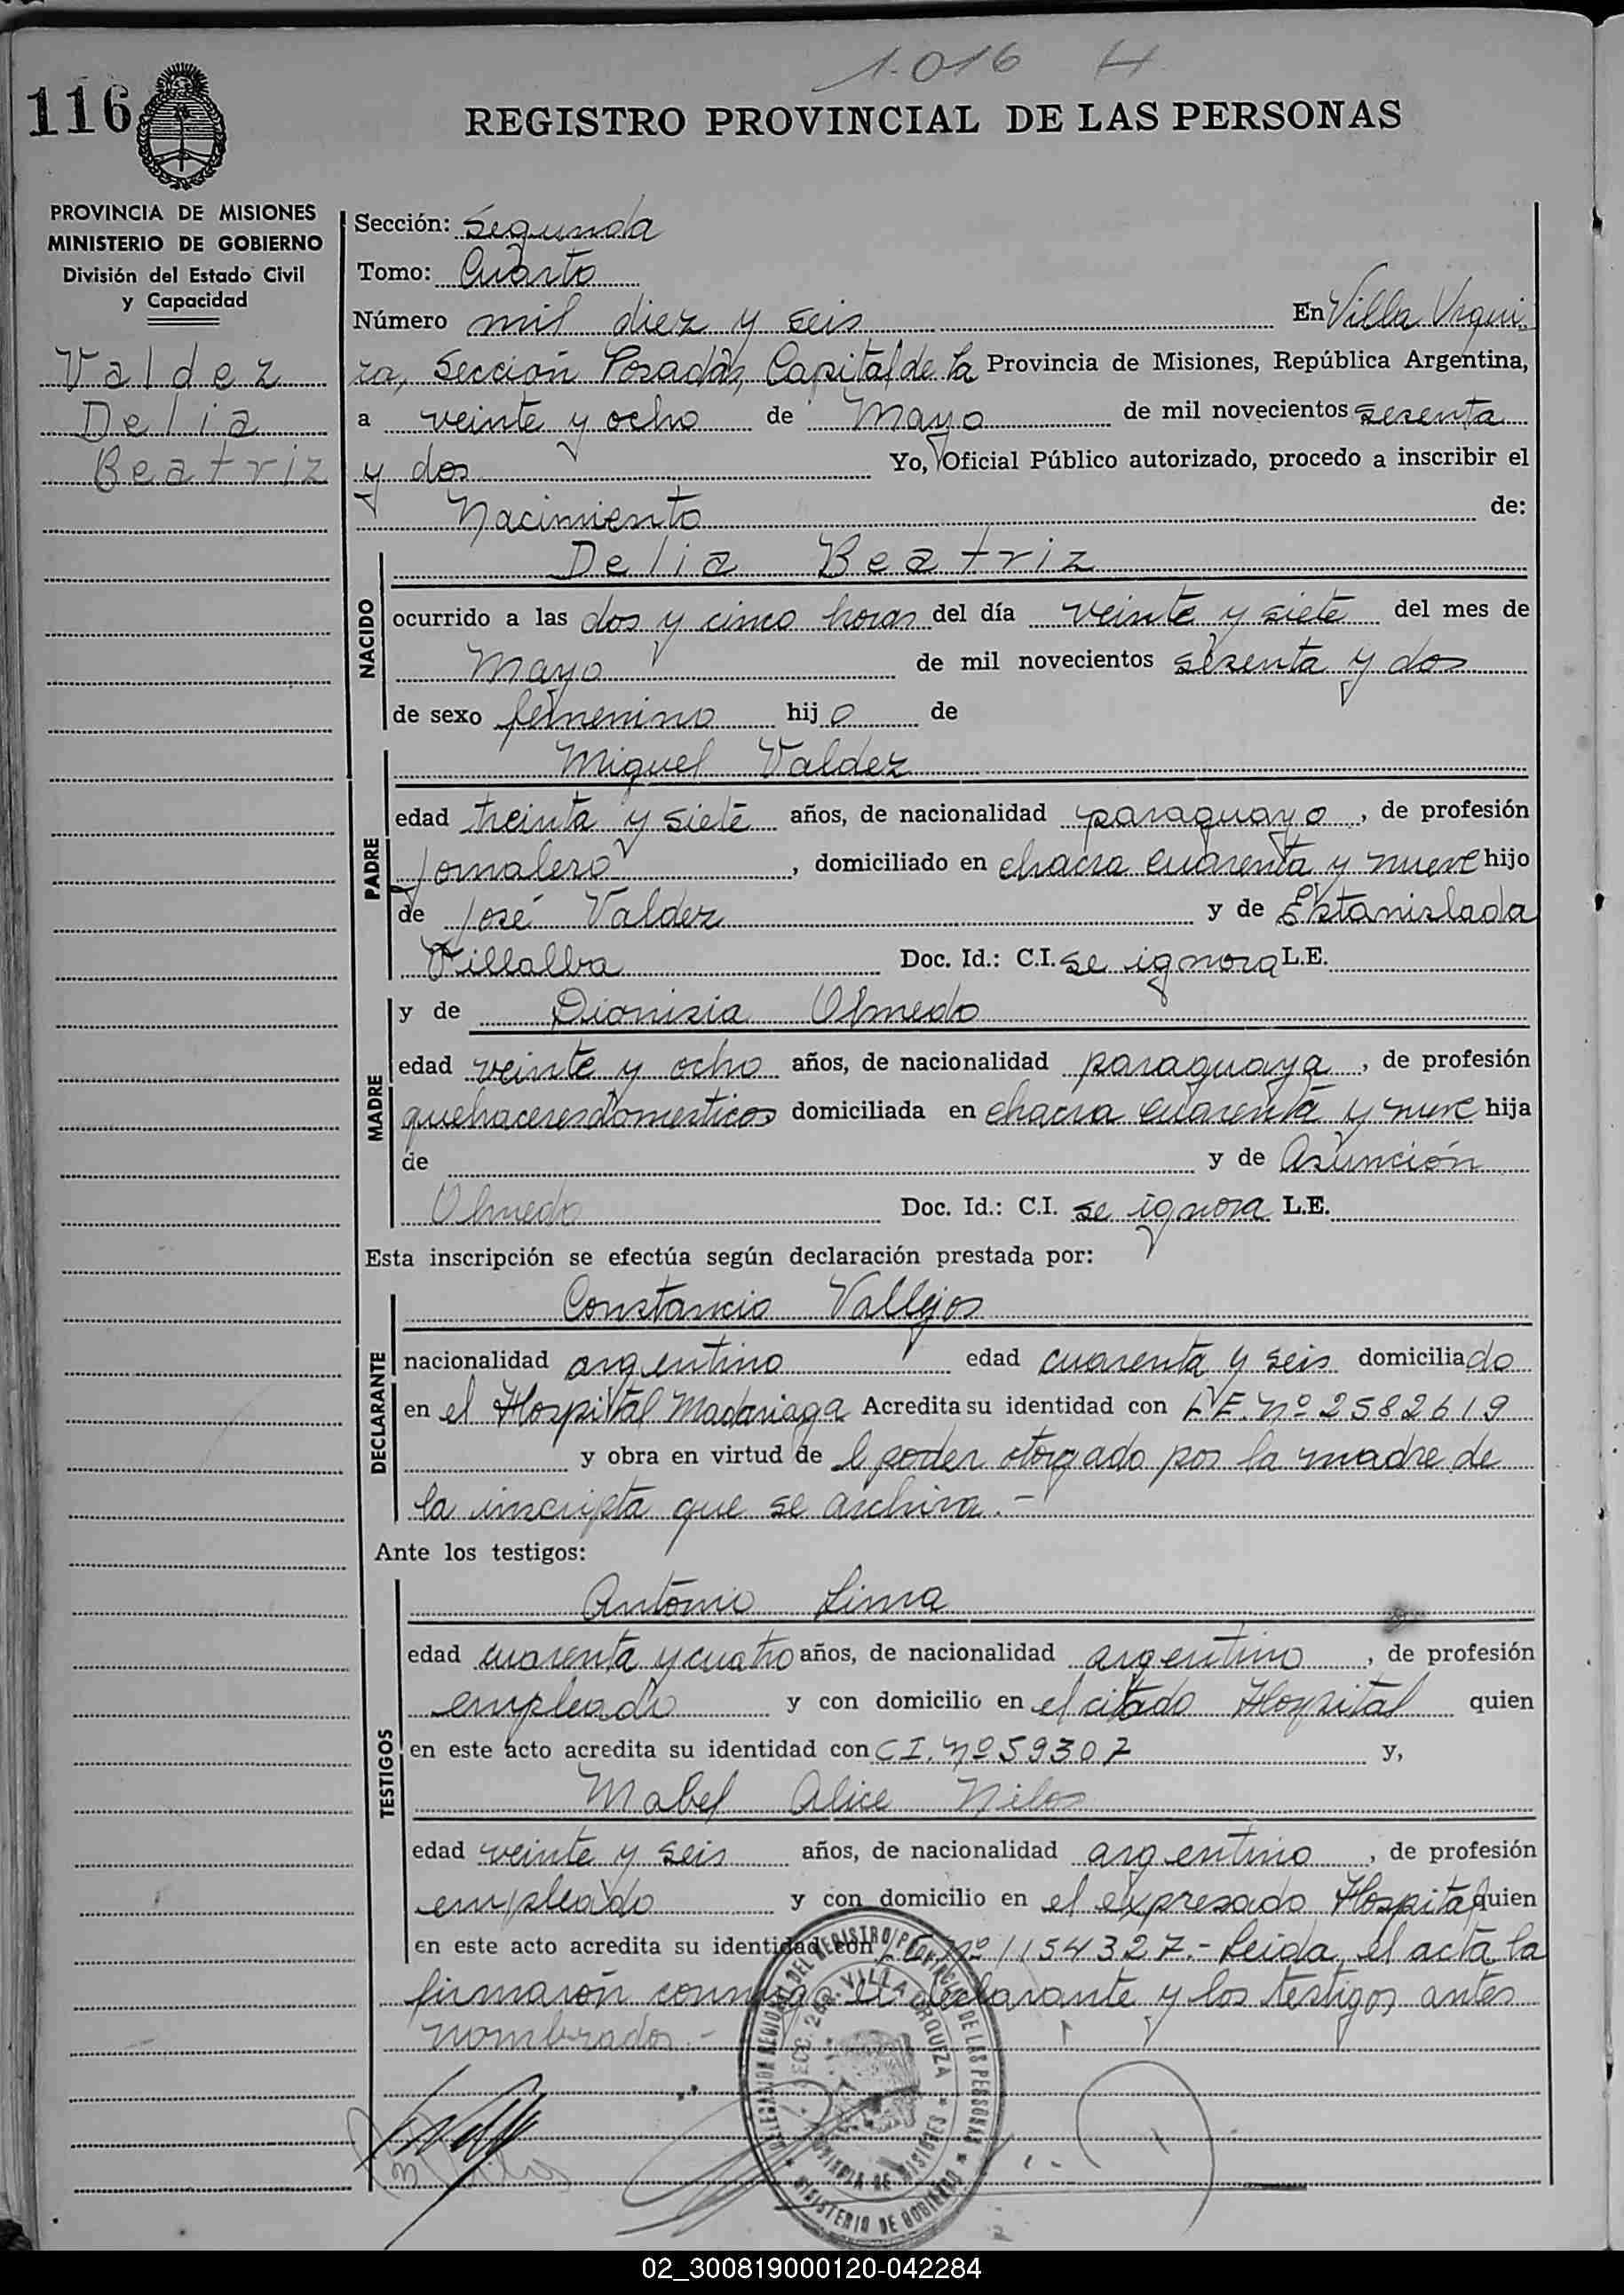 1.016 H
116
REGISTRO PROVINCIAL DE LAS PERSONAS
PROVINCIA DE MISIONES
MINISTERIO DE GOBIERNO
División del Estado Civil
y Capacidad
Valdez
Delia
Beatriz
Sección: Segunda
Tomo: Cuarto
Número mil diez y seis En Villa Urqui
za, Sección Posadas, Capital de la Provincia de Misiones, República Argentina,
a veinte y ocho de Mayo de mil novecientos sesenta
y dos Yo, Oficial Público autorizado, procedo a inscribir el
Nacimiento de:
NACIDO
Delia Beatriz
ocurrido a las dos y cinco horas del día veinte y siete del mes de
Mayo de mil novecientos sesenta y dos
de sexo femenino hijo de
PADRE
Miguel Valdez
edad treinta y siete años, de nacionalidad paraguayo, de profesión
jornalero, domiciliado en chacra cuarenta y nueve hijo
de José Valdez y de Estanislada
Villalba Doc. Id.: C.I. se ignora L.E.
MADRE
y de Dionisia Olmedo
edad veinte y ocho años, de nacionalidad paraguaya, de profesión
quehaceres domesticos domiciliada en chacra cuarenta y nueve hija
de y de Asunción
Olmedo Doc. Id.: C.I. se ignora L.E.
Esta inscripción se efectúa según declaración prestada por:
DECLARANTE
Constancio Vallejos
nacionalidad argentino edad cuarenta y seis domiciliado
en el Hospital Madariaga Acredita su identidad con L.E. Nº 2582619
y obra en virtud de l poder otorgado por la madre de
la inscripta que se archiva.-
Ante los testigos:
TESTIGOS
Antonio Lima
edad cuarenta y cuatro años, de nacionalidad argentino, de profesión
empleado y con domicilio en el citado Hospital quien
en este acto acredita su identidad con C.I. Nº 59307 y,
Mabel Alice Nilos
edad veinte y seis años, de nacionalidad argentino, de profesión
empleado y con domicilio en el expresado Hospital quien
en este acto acredita su identidad con Nº 1154327.- Leida el acta la
firmaron conmigo el declarante y los testigos antes
nombrados.-
DELEGACION REGIONAL DEL REGISTRO PROVINCIAL DE LAS PERSONAS
SECC. 2da. VILLA URQUIZA
PROVINCIA DE MISIONES
MINISTERIO DE GOBIERNO
02_300819000120-042284